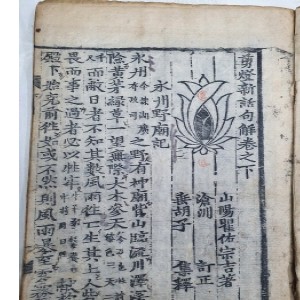 剪燈新話句解卷之下
山陽瞿佑宗吉著
滄洲 訂正
垂胡子 集釋
永州野廟記
永州之野有神廟背山臨流川澤深
險黃茅綠草一望無際大木參天
而蔽日者不知其數風雨往往生其上人
畏而事之過者必以牲牢
殿下始克前往如或不然則風雨暴至